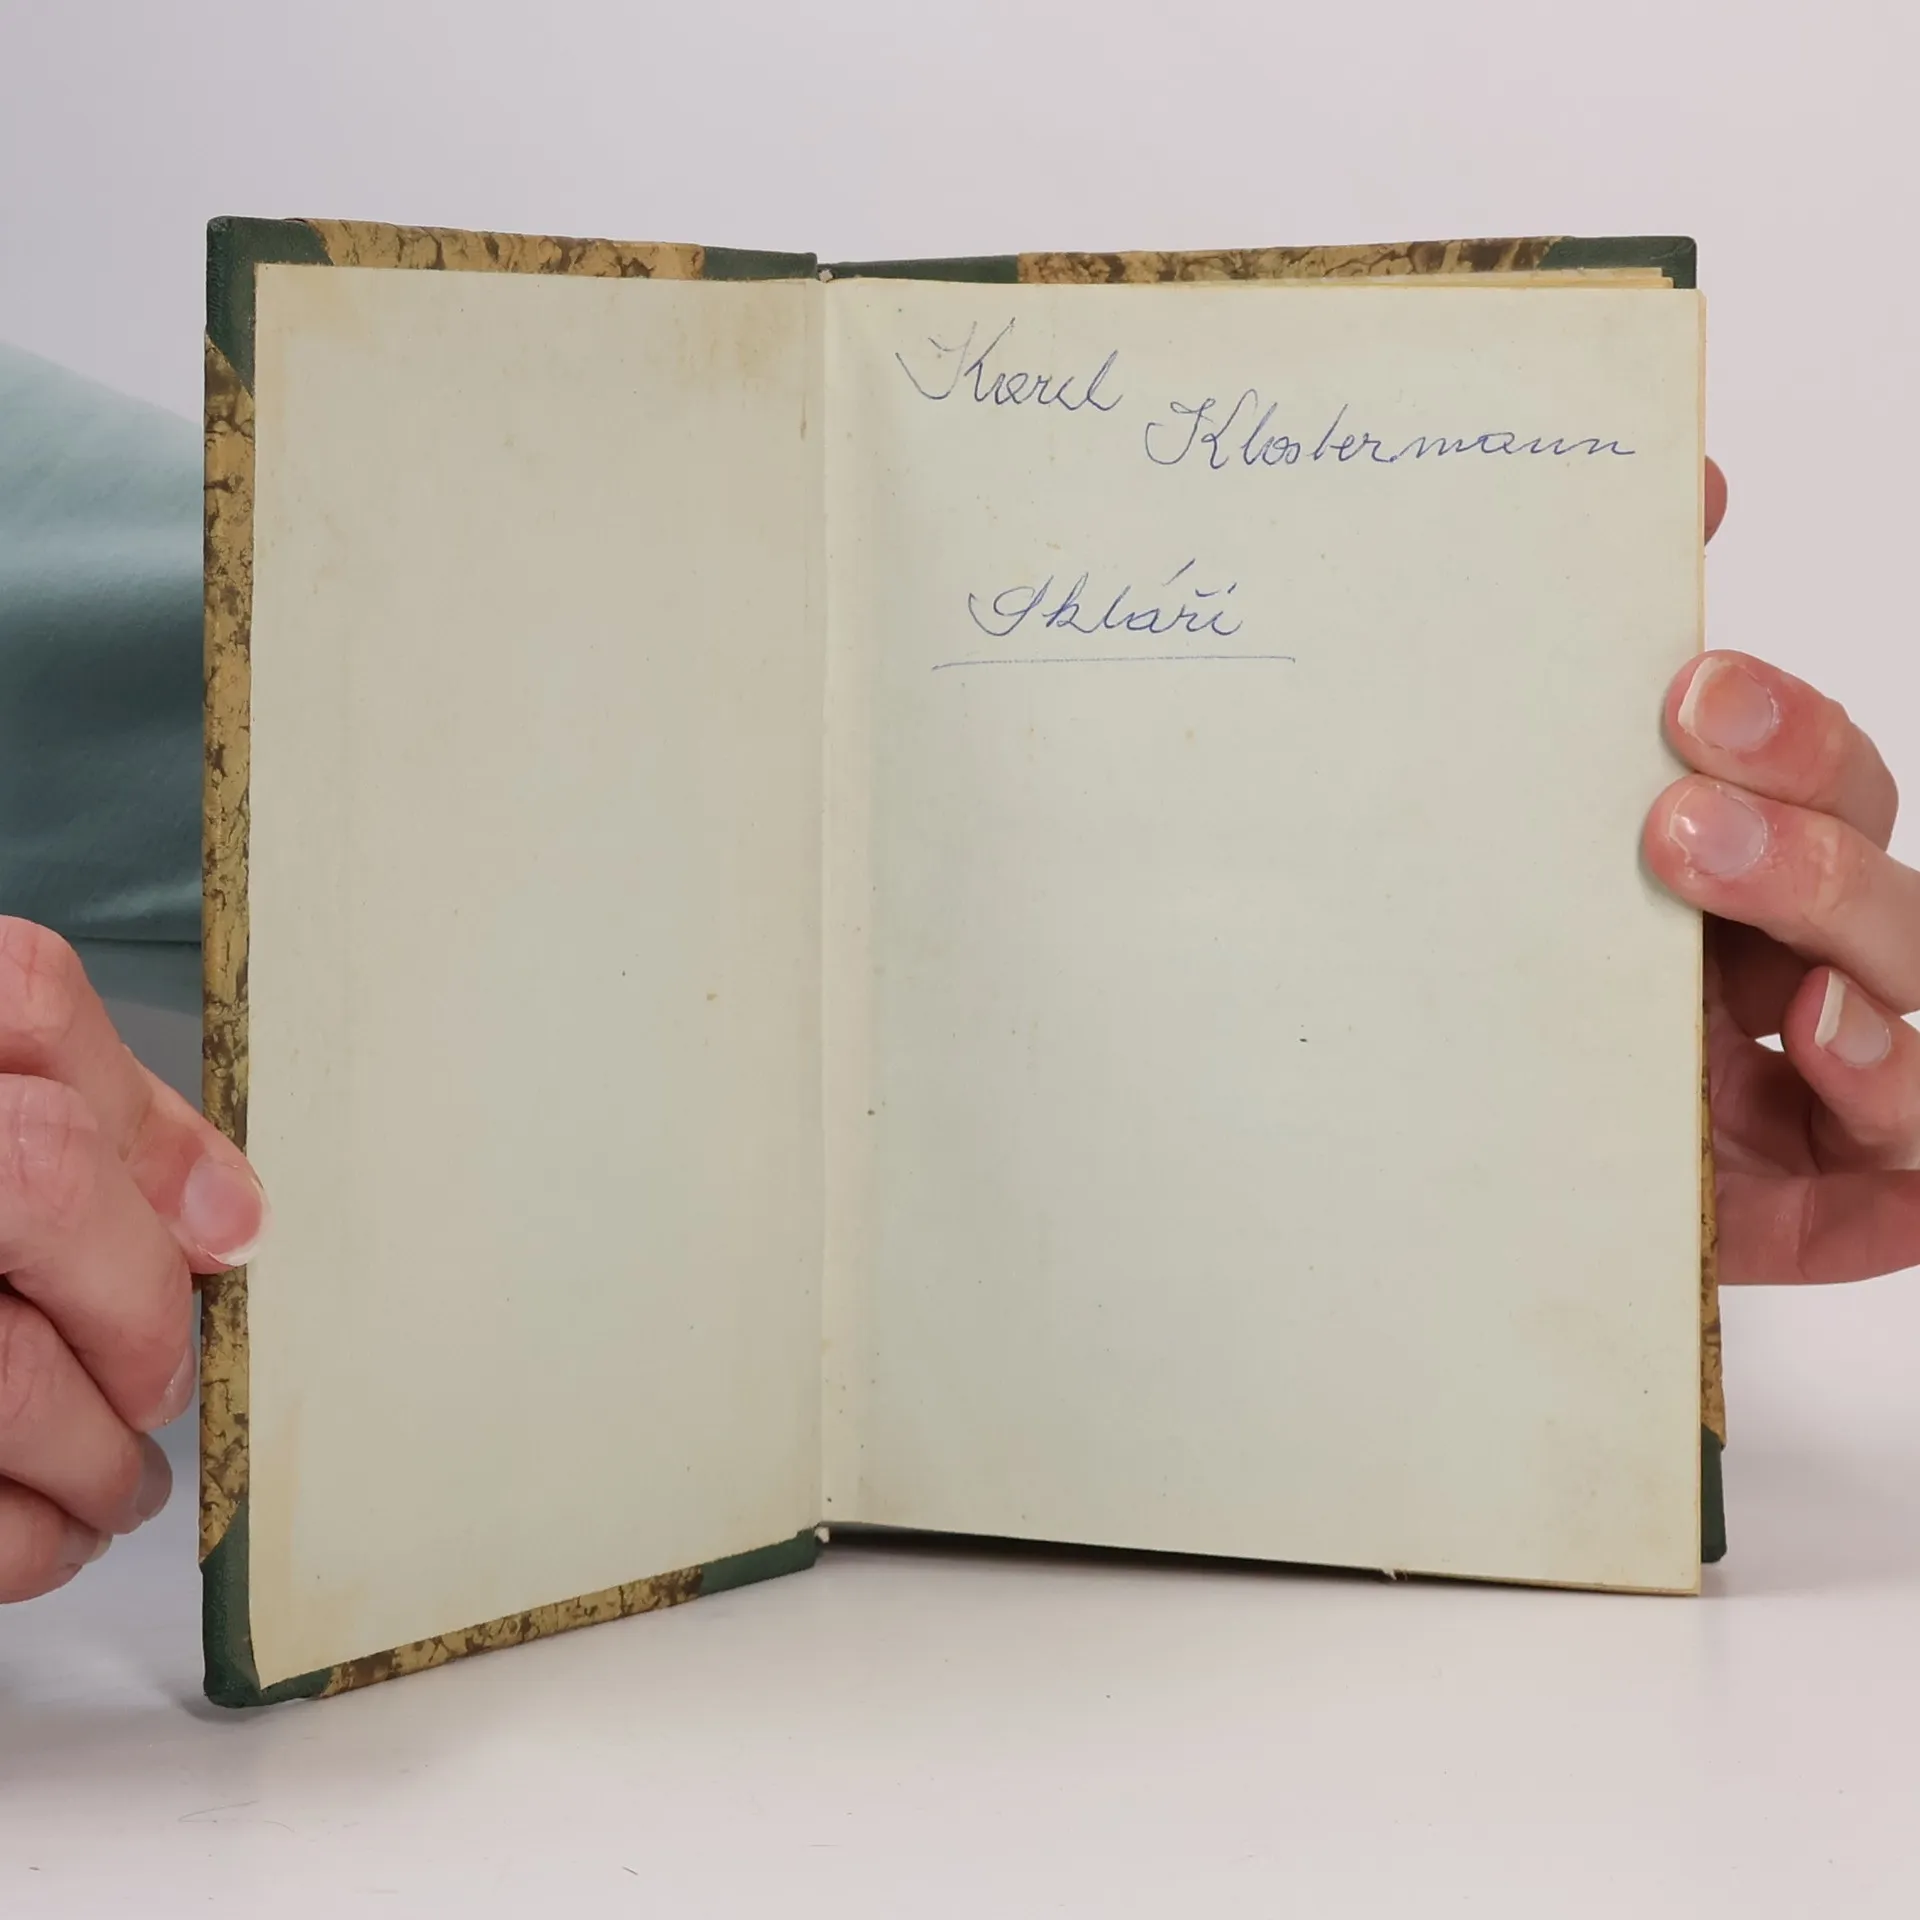 Karel Klostermann
Skláři